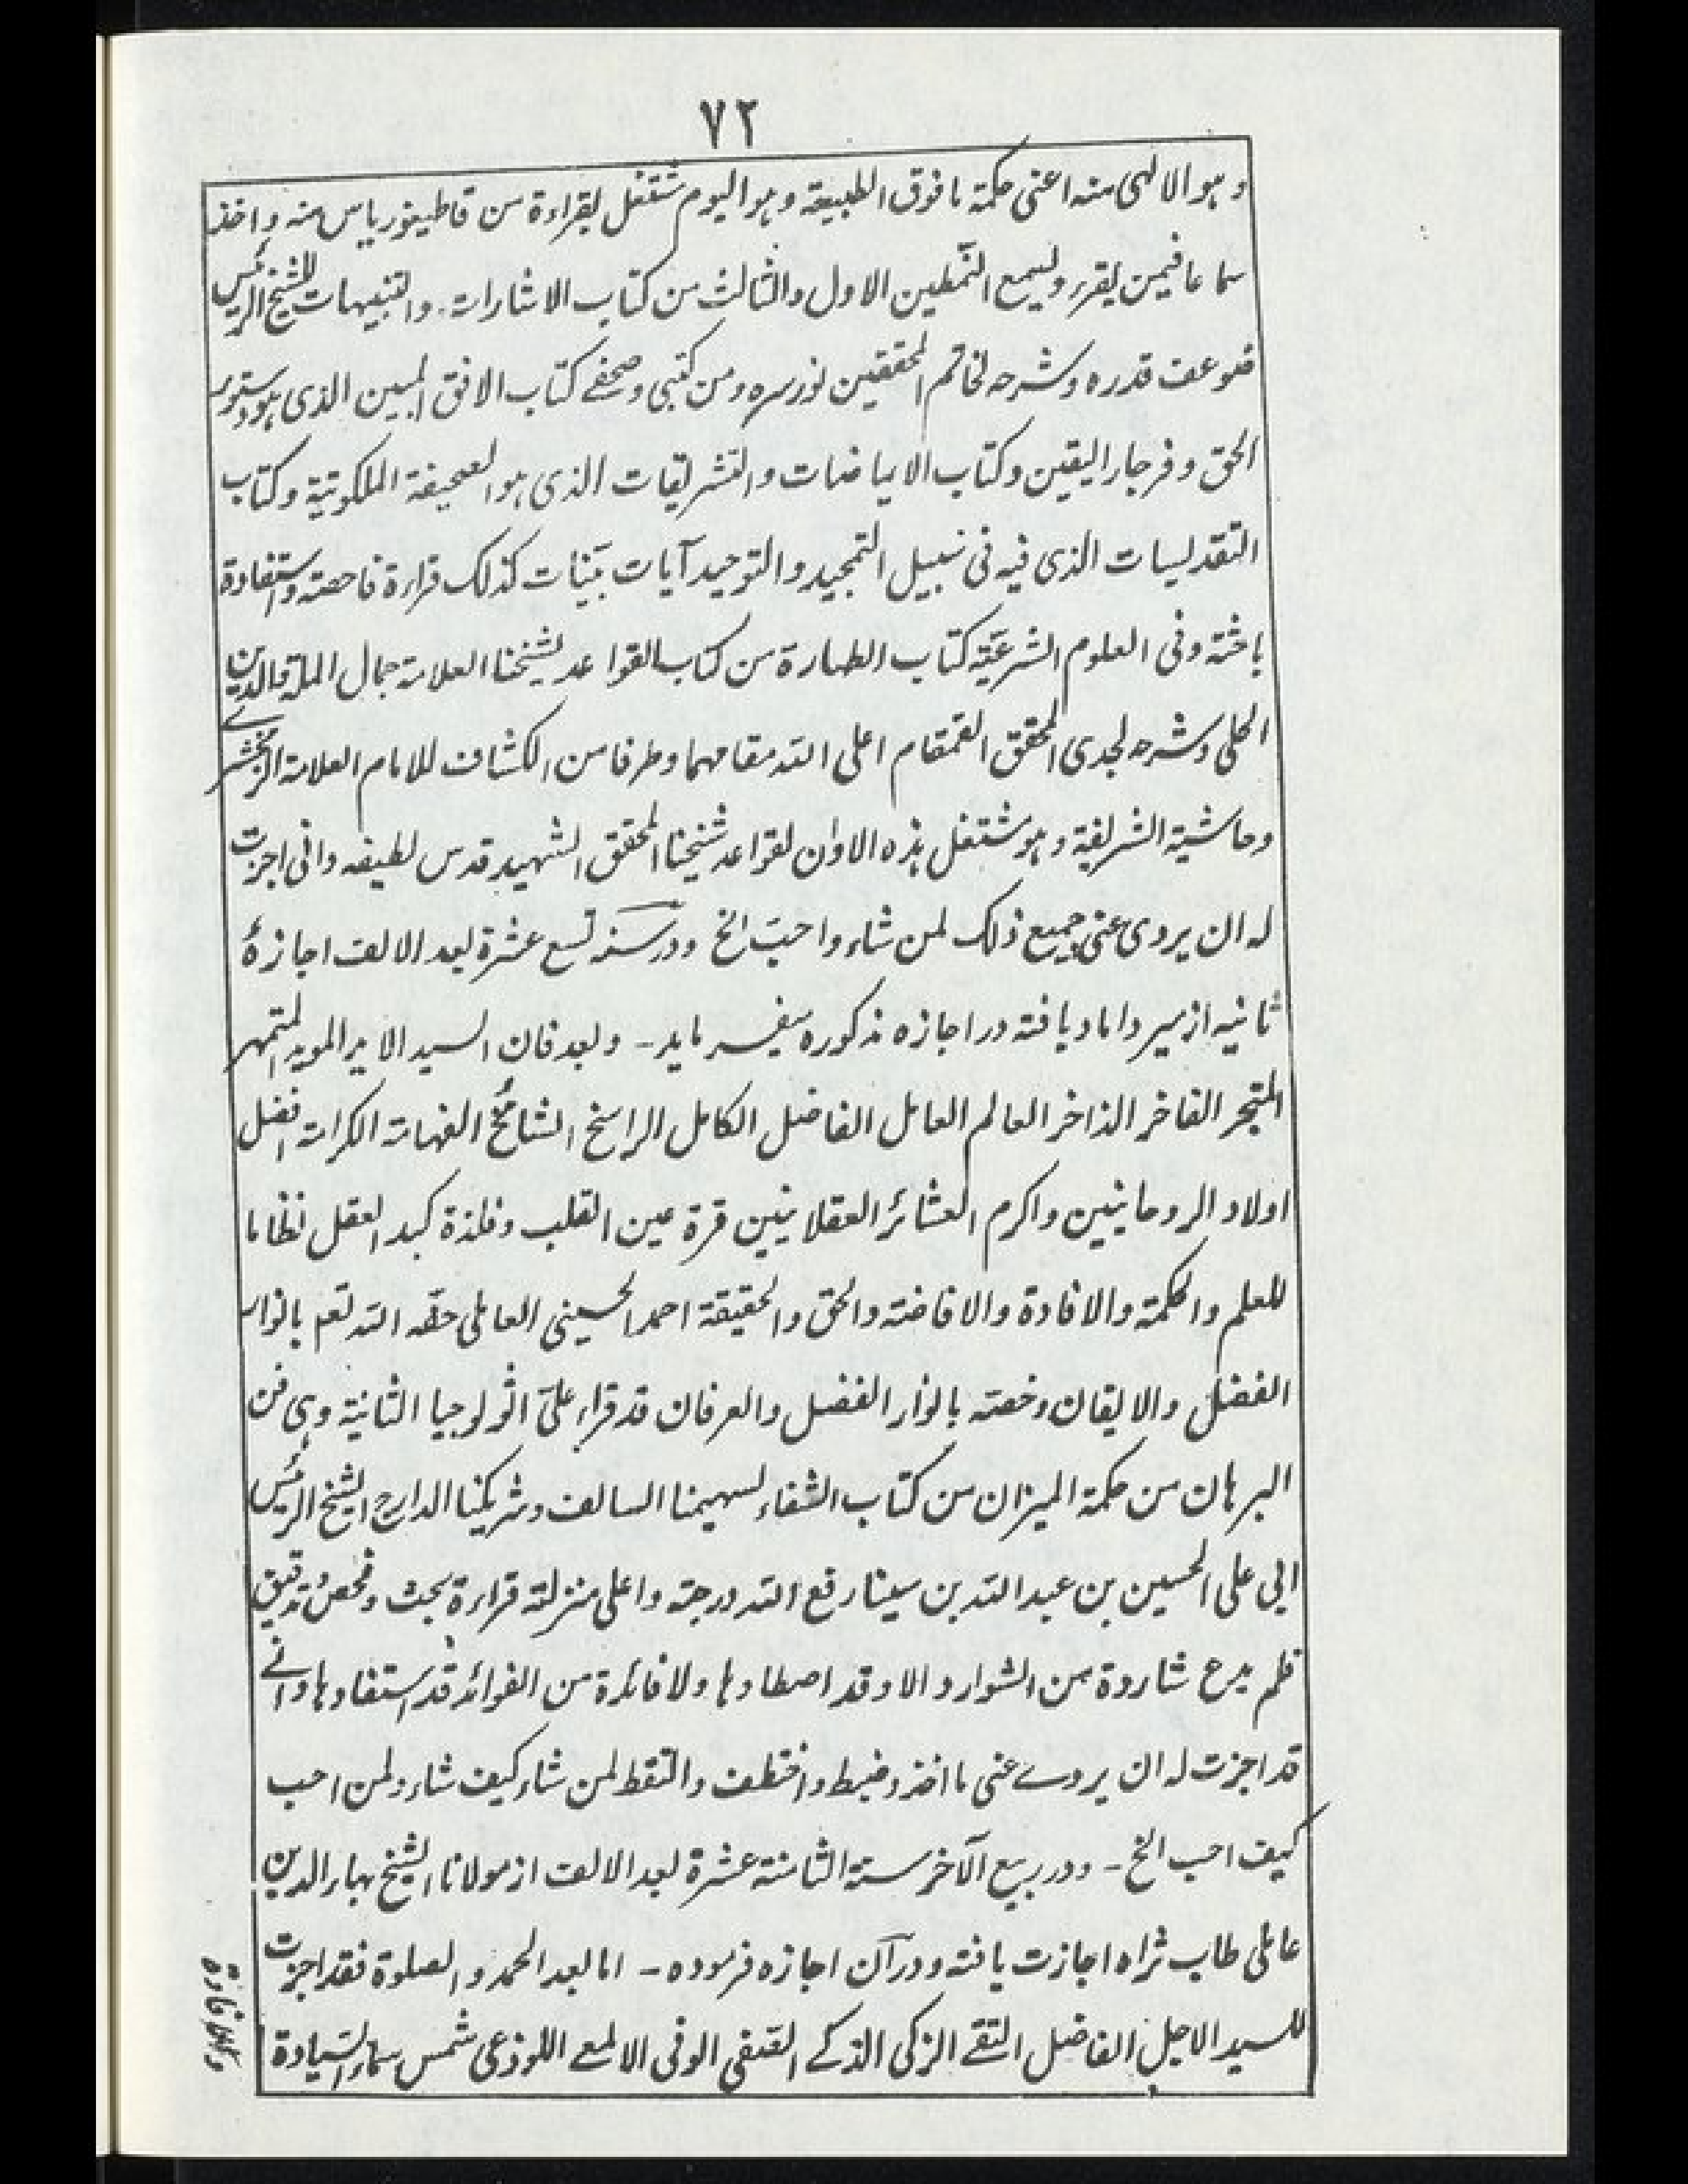 ٧٢
و هو الالهی منه اعنی حکمة ما فوق الطبیعة و هو الیوم مشتغل بقراءة من قاطیغوریاس منه و اخذ
سماعا فیمن یقرء و یسمع النمطین الاول والثالث من کتاب الاشارات والتنبیهات للشیخ الرئیس
ضوعف قدره و شرحه لخاتم المحققین نور سره و من کتبی و صحفے کتاب الافق المبین الذی هو دستور
الحق و فرجار الیقین و کتاب الایماضات والتشریقات الذی هو الصحیفة الملکوتیة و کتاب
التقدیسات الذی فیه فی سبیل التمجید والتوحید آیات بیّنات کذلک قراءة فاحصة و استفادة
باحثة و فی العلوم الشرعیّة کتاب الطهارة من کتاب القواعد لشیخنا العلامة جمال الملة والدین
الحلی و شرحه لجدی المحقق القمقام اعلی الله مقامهما و طرفا من الکشاف للامام العلامة الزمخشرے
و حاشیة الشریفیة و هو مشتغل هذه الاوان لقواعد شیخنا المحقق الشهید قدس لطیفه و انی اجزت
له ان یروی عنی جمیع ذلک لمن شاء و احبّ الخ و در سنه تسع عشرة بعد الالف اجازهٔ
ثانیه از میر داماد یافته در اجازه مذکوره میفرماید ـ و بعد فان السید الاید الموید المتمهر
المتبحر الفاخر الذاخر العالم العامل الفاضل الکامل الراسخ الشامخ الفهامة الکرامة افضل
اولاد الروحانیین و اکرم العشائر العقلانیین قرة عین القلب و فلذة کبد العقل نظاما
للعلم والحکمة والافادة والافاضة والحق والحقیقة احمد الحسینی العاملی حقه الله تعم بانوار
الفضل والایقان و خصته بانوار الفضل والعرفان قد قراء علیّ اثولوجیا الثانیة و هی فن
البرهان من حکمة المیزان من کتاب الشفاء لسهیمنا السالف و شریکنا الدارج الشیخ الرئیس
ابی علی الحسین بن عبد الله بن سینا رفع الله درجته و اعلی منزلته قراءة بحث و فحص و تدقیق
فلم یدع شاردة من الشوارد الا و قد اصطادها و لا فائدة من الفوائد قد استفادها و انے
قد اجزت له ان یروے عنی ما اخذ و ضبط و اختطف و التقط لمن شاء کیف شاء و لمن احب
کیف احب الخ ـ و در ربیع الآخر سنة الثامنة عشرة بعد الالف از مولانا الشیخ بهاء الدین
عاملی طاب ثراه اجازت یافته و در آن اجازه فرموده ـ اما بعد الحمد و الصلوة فقد اجزت
للسید الاجل الفاضل التقے الزکی الذکے الصفی الوفی الالمعے اللوذعی شمس سماء السیادة